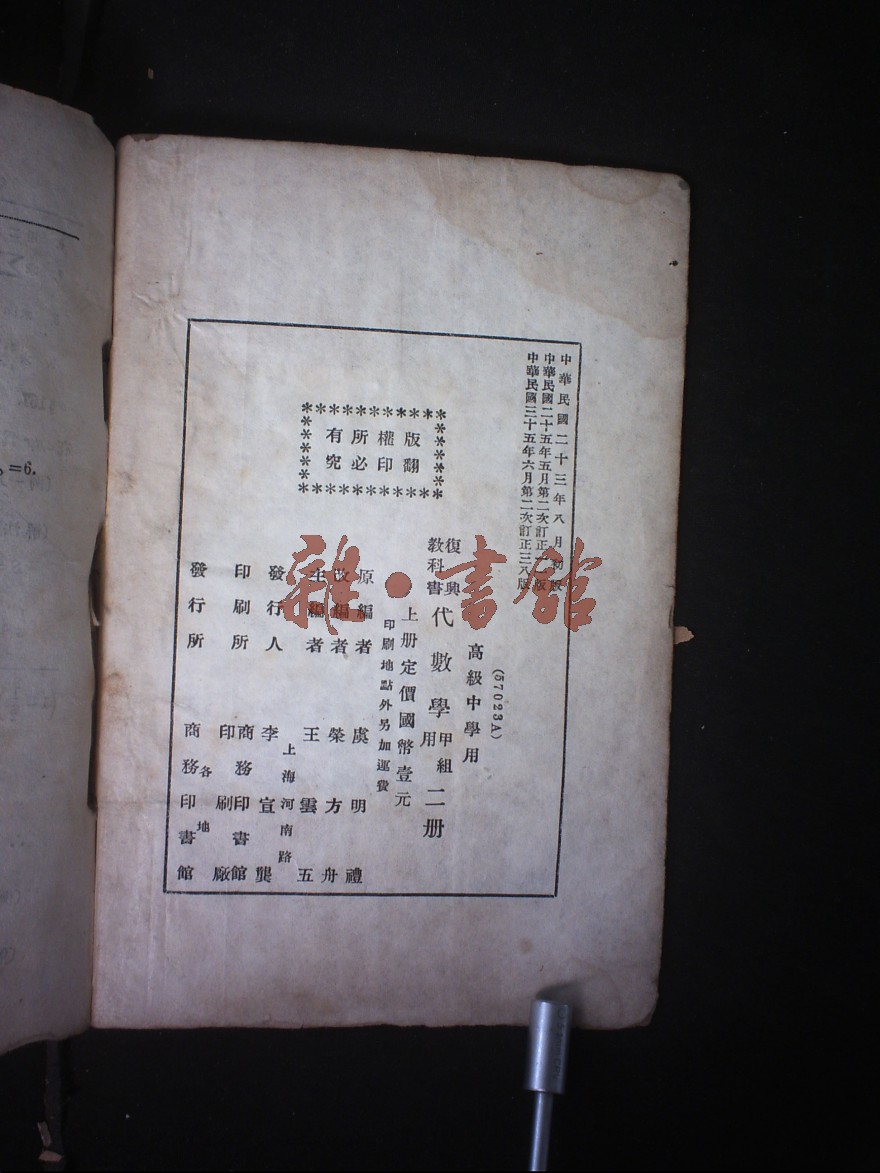 中華民國二十三年八月初版
中華民國二十五年五月第二次訂正
版
中華民國三十五年六月第二次訂正三八版
(57023A)
高級中學用
復興
教科書
代數學
甲組
用
二册
上册定價國幣壹元
印刷地點外另加運費
版權所有
翻印必究
原編者 虞明禮
改編者 榮方舟
主編者 王雲五
上海河南路
發行人 李宣龔
印刷所 商務印書館
印刷廠
發行所 商務印書館
各地
=6.
雜·書館